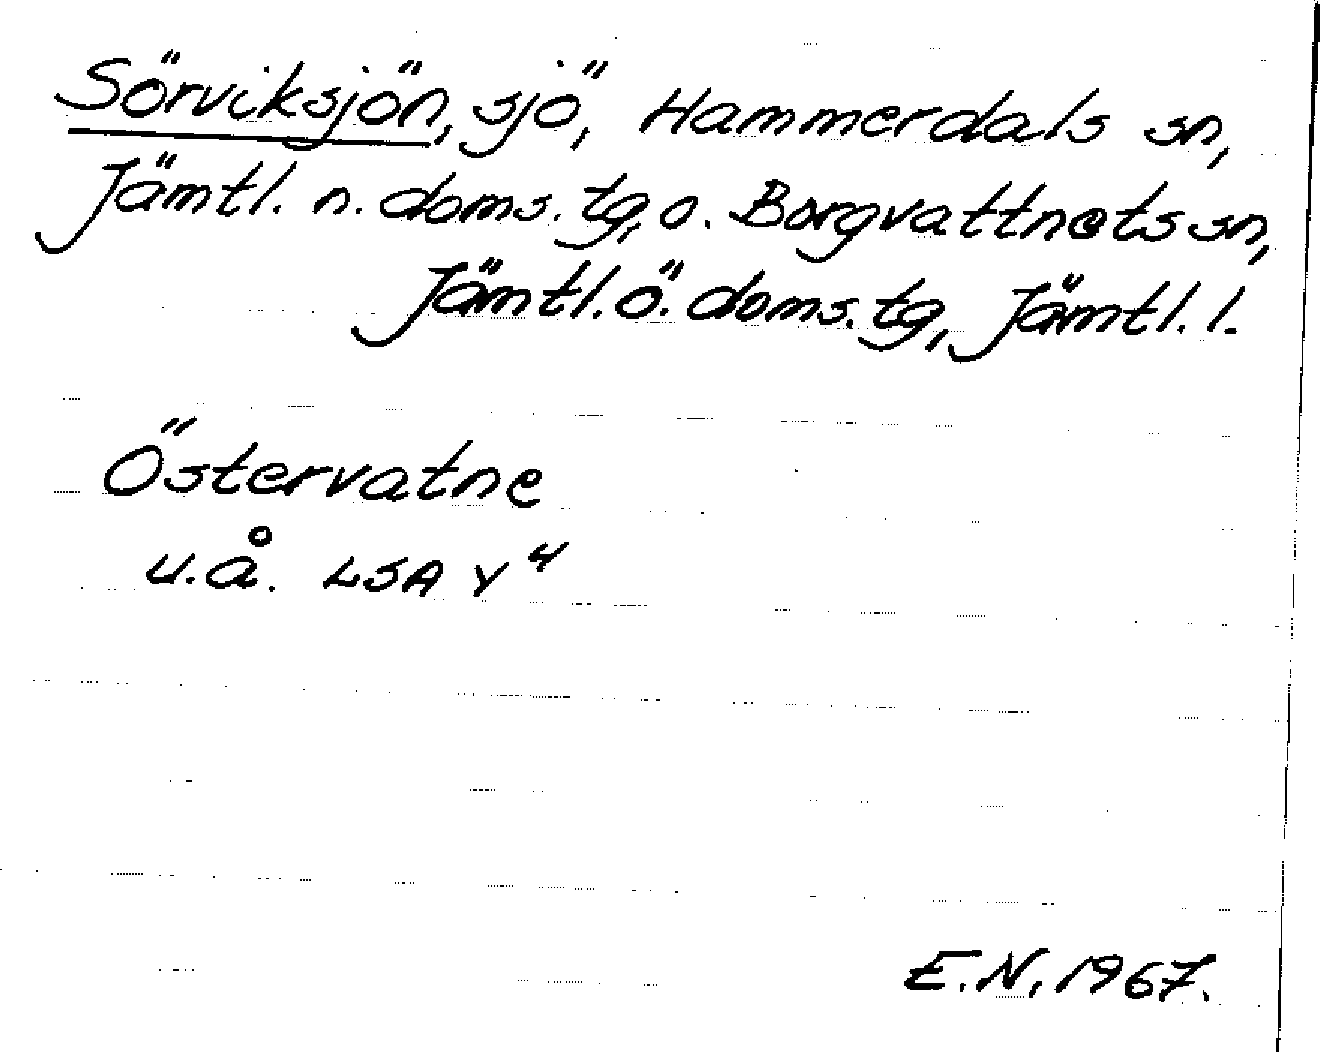 Sörviksjön, sjö, Hammerdals sn,
Jämtl. n. doms. tg, o. Borgvattnets sn,
Jämtl. ö. doms. tg, Jämtl. l.
Östervatne
u.å. LSA Y 4
E.N. 1967.